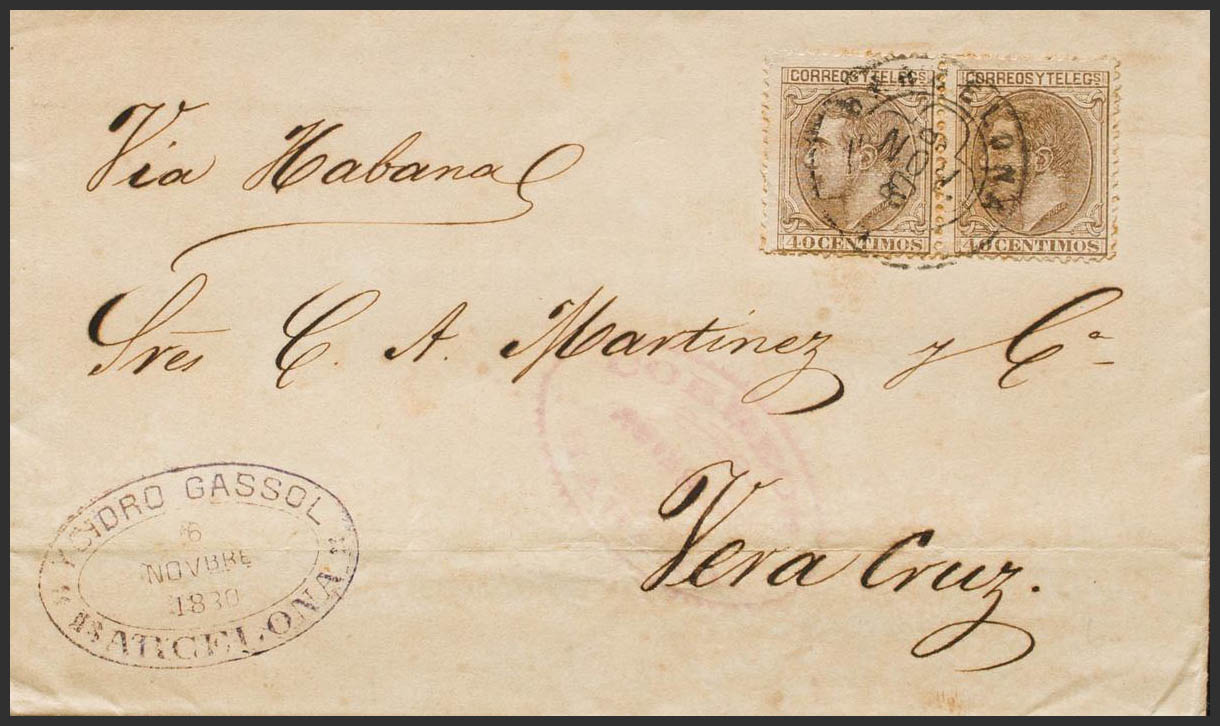 Via Habana
CORREOS Y TELEGS
40 CENTIMOS
CORREOS Y TELEGS
40 CENTIMOS
BARCELONA
Sres C. A. Martinez y Cª
CORREOS
Vera Cruz.
YSIDRO GASSOL
6
NOVBRE
1880
BARCELONA